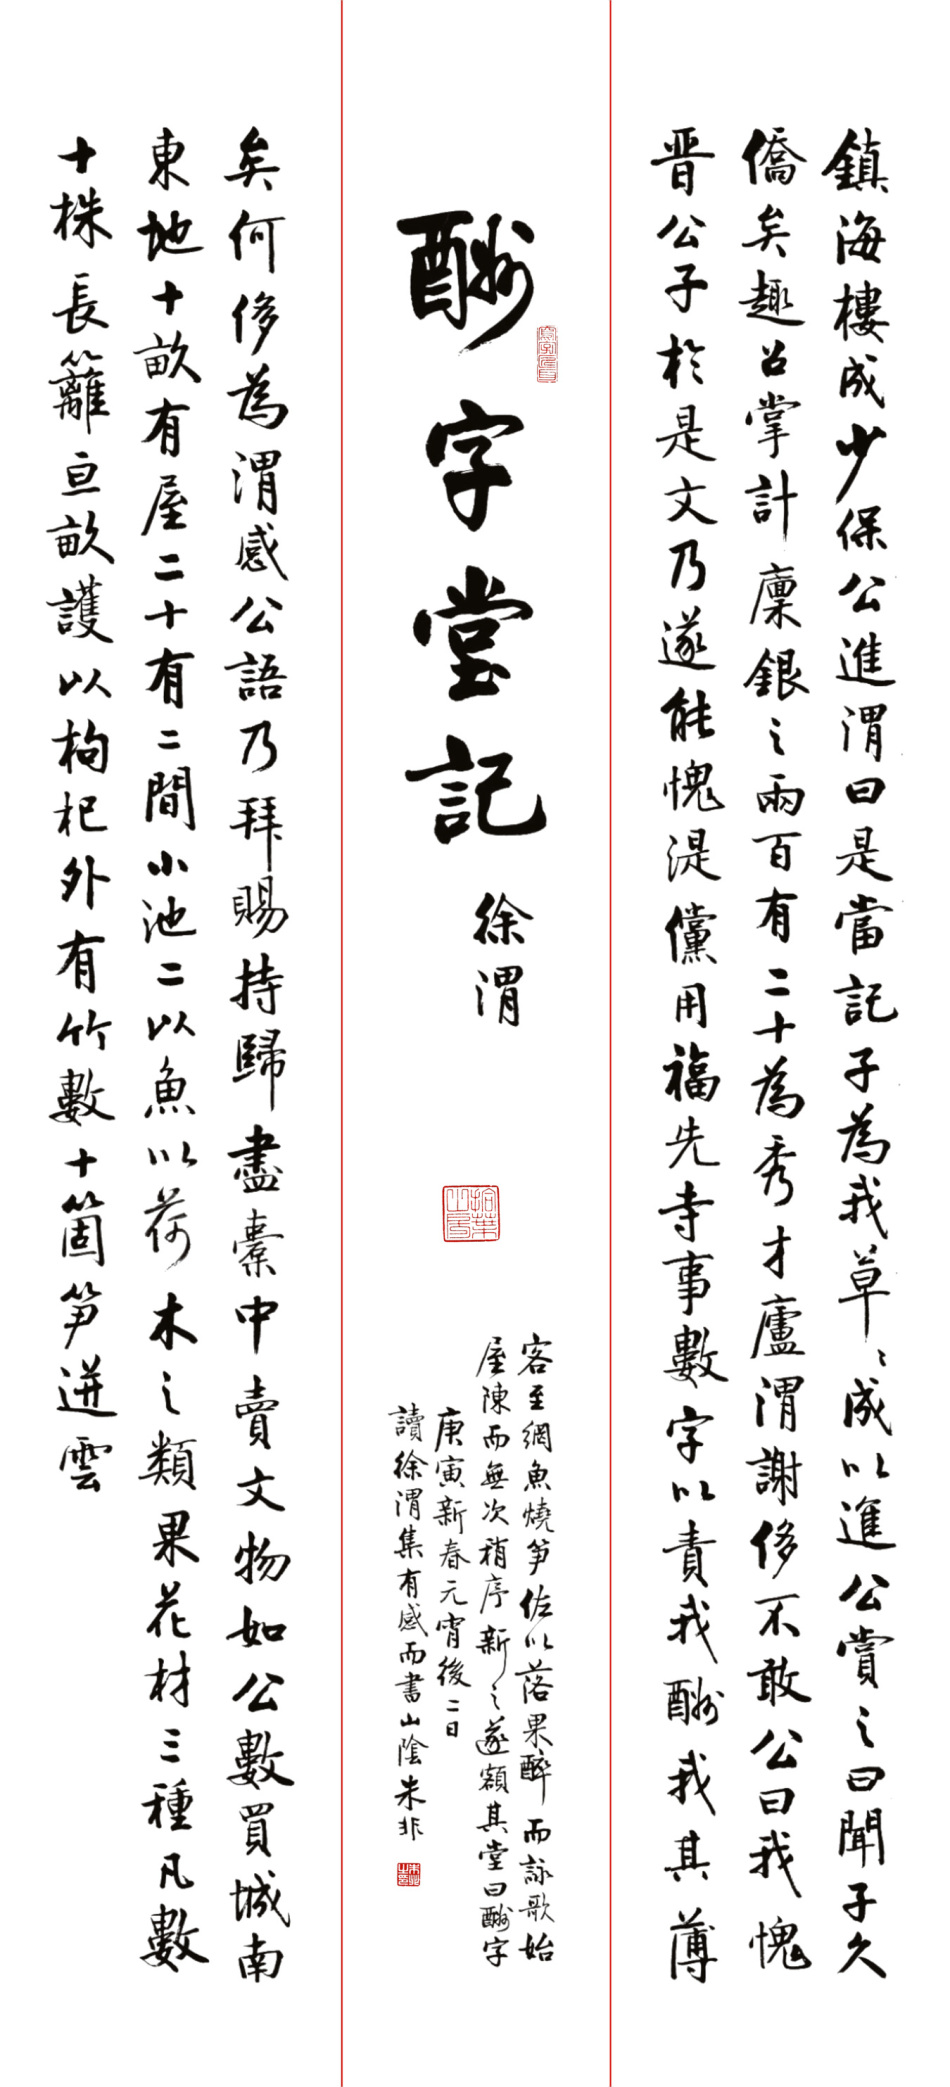 酬字堂記
徐渭
鎮海樓成少保公進渭曰是當記子為我草〻成以進公賞之曰聞子久
僑矣趣召掌計廩銀之兩百有二十為秀才廬渭謝侈不敢公曰我愧
晋公子於是文乃遂能愧湜儻用福先寺事數字以責我酬我其薄
矣何侈為渭感公語乃拜賜持歸盡橐中賣文物如公數買城南
東地十畝有屋二十有二間小池二以魚以荷木之類果花材三種凡數
十株長籬亘畝護以枸杞外有竹數十箇笋迸雲
客至網魚燒笋佐以落果醉而詠歌始
屋陳而無次稍序新之遂額其堂曰酬字
庚寅新春元宵後二日
讀徐渭集有感而書山陰朱非
拾葉山房